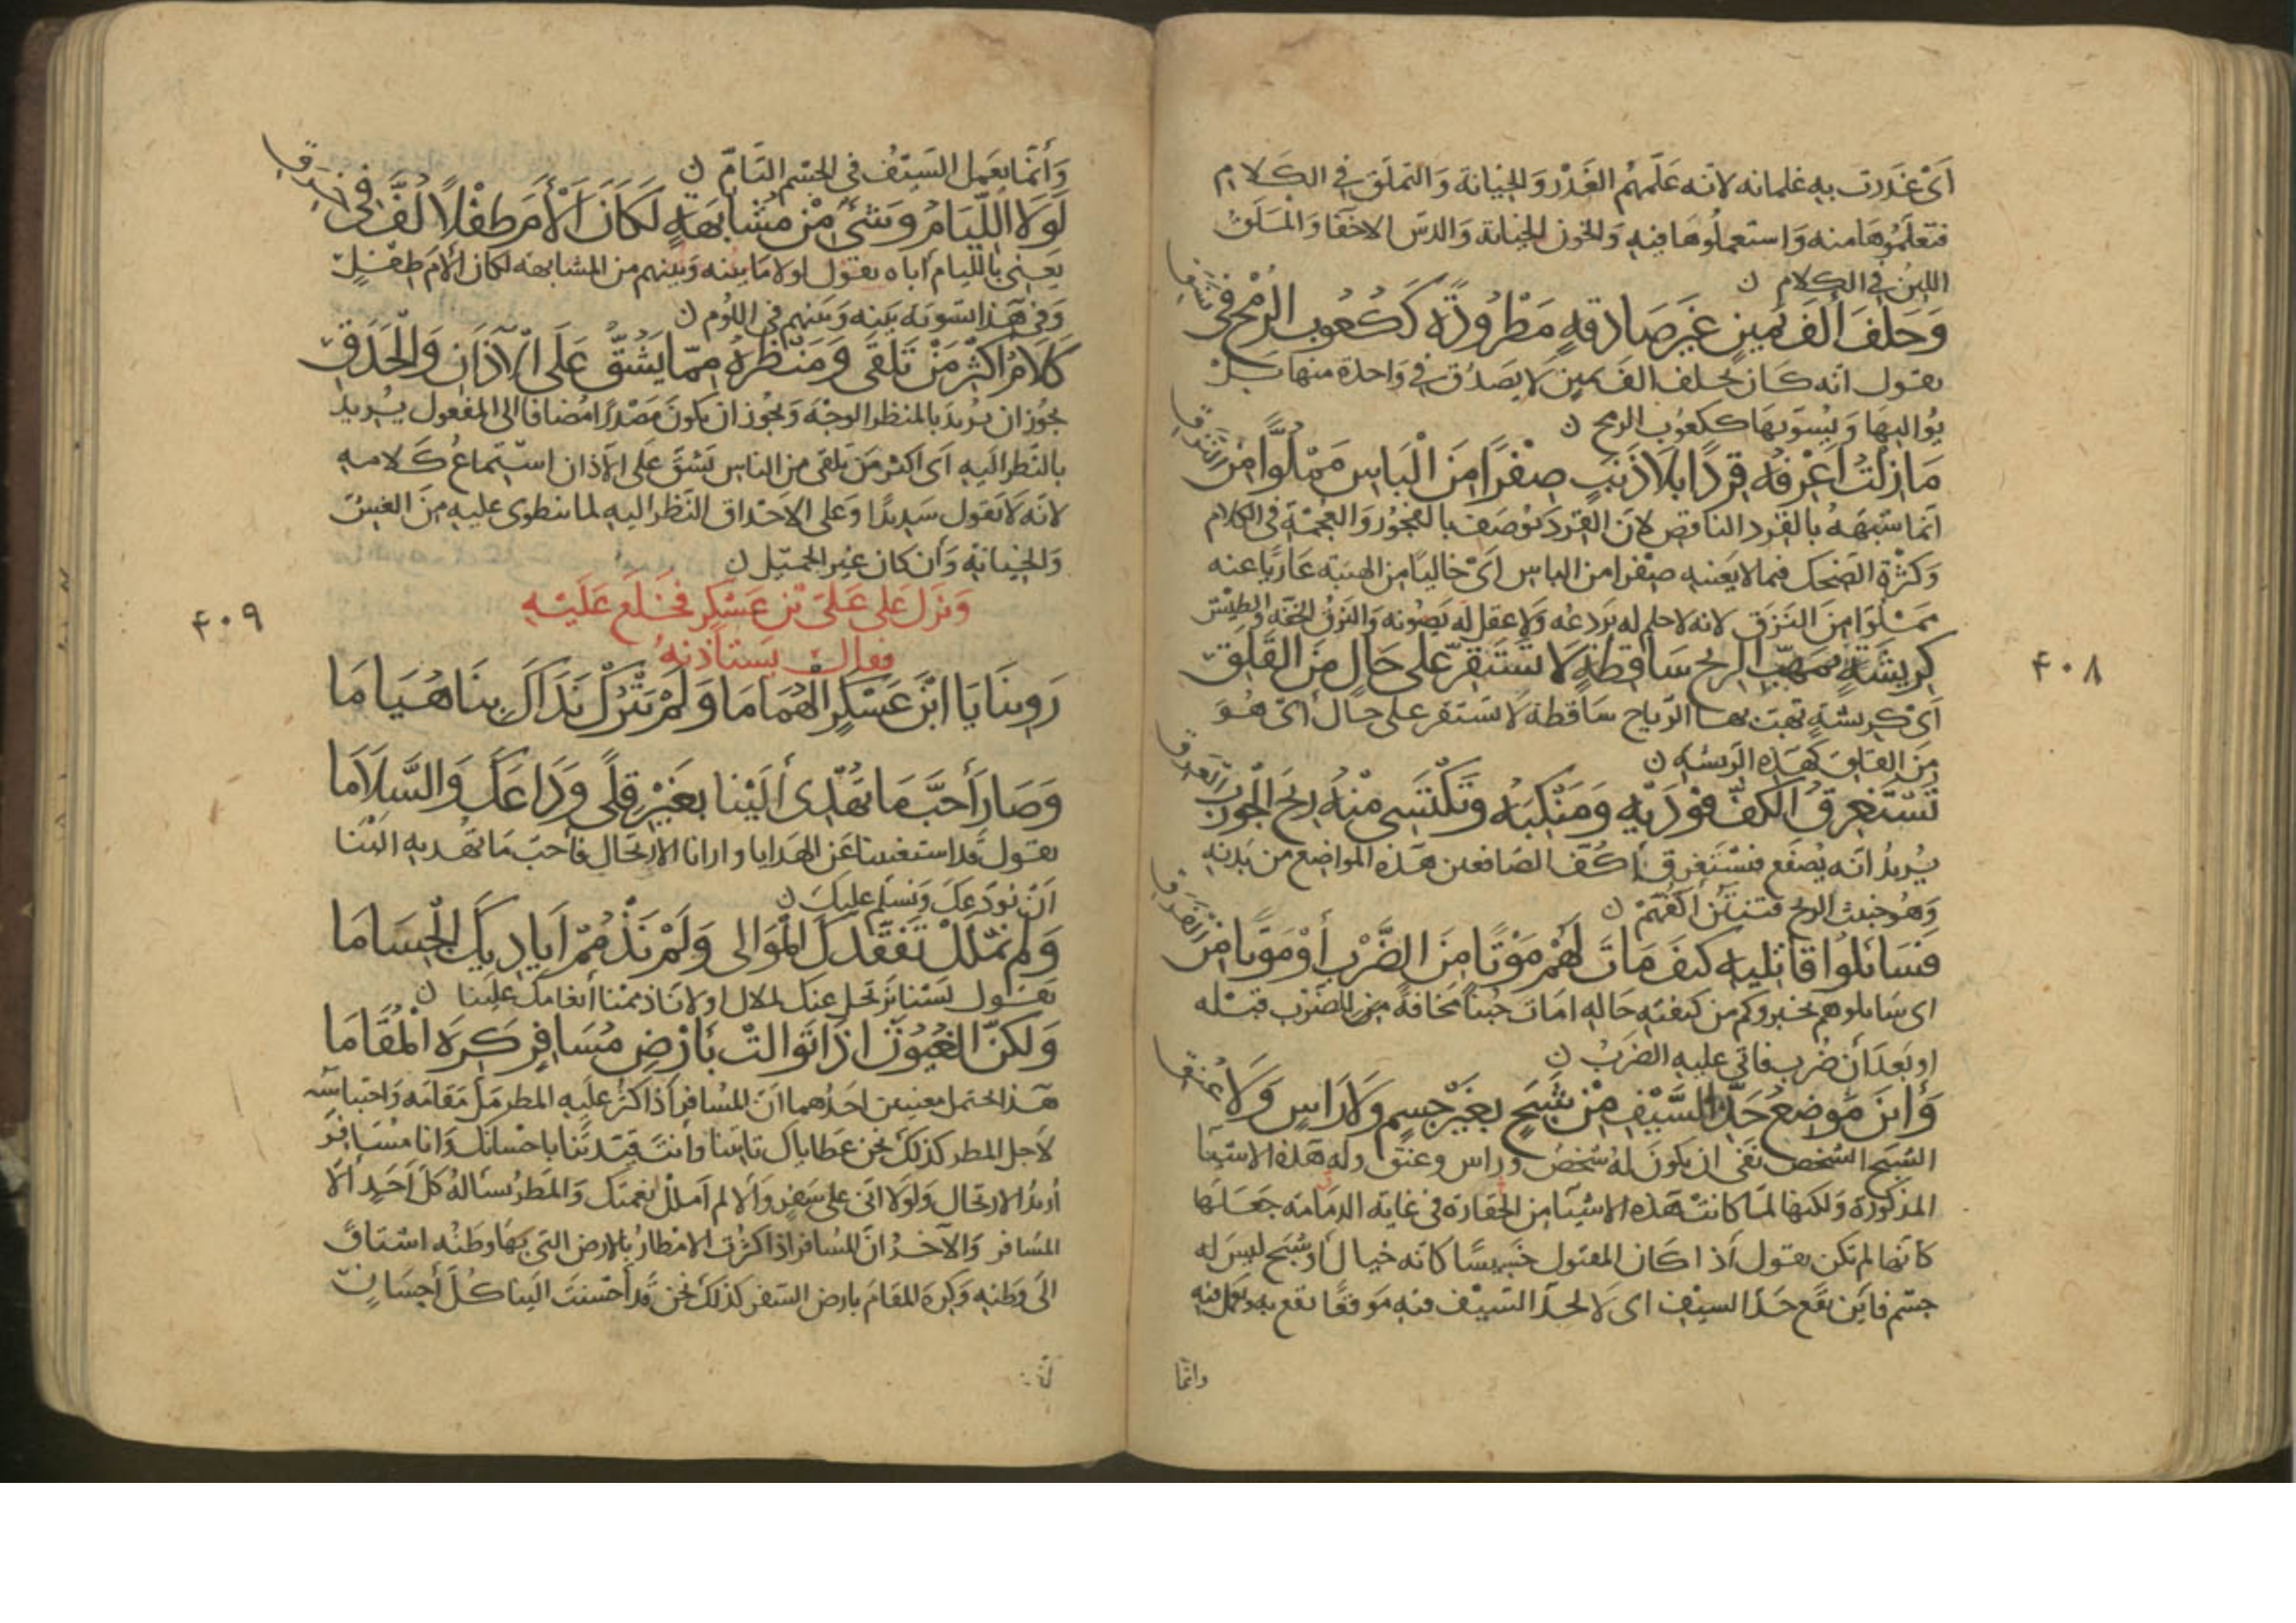 اَىْ غَدَرت بهِ غلمانه لانه عَلّمهُم الغَدْر وَالخِيانة وَالتملّق فى الكَلام
فتعلّمُوهَا منه وَاستعملُوهَا فيهِ وَالخون الخِيانة وَالدسّ الاخفَا وَالمَلَقُ
اللينُ فى الكلام ن
وَحَلفَ أَلفَ يَمينٍ غيرَ صَادقهٍ مَطْرُودَةٍ كَكُعُوب الرُّمْح فى نَسَقِ
يقول انّه كَان يحلف الفَ يمينٍ لا يَصدُق فى وَاحدة منها بَلْ
يُواليهَا وَيُسوّيهَا ككعُوب الرمح ن
مَا زِلْتُ اَعْرفُه قِردًا بلَا ذَنَبٍ صِفْرًا مِنَ الْبَاسِ مَمْلُوًّا مِنَ النَّزَقِ
انما شبّههُ بالقرد الناقص لانّ القرد يُوصَف بالفجُور وَالعجمَة فى الكلام
وَكثرَة الضحك فيما لا يَعنيهِ صِفرا من الباس اَىْ خاليًا من الهيبة عَاريًا عنه
ممْلُوّا مِنَ النَزَق لانه لا حلم له يَردعُه وَلا عقل له يَصُونه وَالنزق الخفّه والطيش
كرِيشَةٍ بمَهَبِّ الريح سَاقطةٍ لا تَسْتَقِرّ على حَالٍ مِنَ القَلَقِ
اَىْ كريشةٍ تهبّ بهَا الرّياح سَاقطة لا تستقر على حال اَىْ هُوَ
مِنَ القلق كهَذهِ الرّيشه ن
تَسْتَغرِقُ الكفُّ فَوْدَيْهِ وَمَنْكِبَهُ وَتَكْتَسِى مِنْهُ رِيحَ الْجَوْرَبِ الْعَرِقِ
يُريدُ انّه يُصفَع فتستَغرق أكُفّ الصّافعين هَذه المواضِع من بَدنهِ
وَهُو خبيث الريح فتنتُن أكفّهُمْ ن
فَسَائلُوا قَاتِليهِ كيفَ مَاتَ لَهُمْ مَوْتًا مِنَ الضَّرْبِ أَوْ مَوتًا مِنَ الْفَرَقِ
اى سَايلوهم يخبروكم من كيفيّه حَالهِ امات جُبنًا مخافةً مِن الضَرْب قبْله
او بَعدَ أن ضُرب فاتى عليهِ الضَربُ ن
وَأينَ مَوضِعُ حَدّ السَّيْفِ مِنْ شَبَحٍ بغَيْرِ جِسمٍ وَلَا رَاسٍ وَلَا عنُقِ
الشبَح الشخص نَفى ان يكونَ لهُ شخصُ وراس وعنق وله هَذه الاشيا
المَذكورَة وَلكنها لما كانت هَذه الاشيَا من الحقارَة فى غاية الدمَامَة جَعَلَهَا
كأنّها لم تكن يقول اذا كَان المقتول خَسِيسًا كانّه خيال أو شبح ليسَ له
جسْم فاَين يقَع حَدّ السيْف اى لَا لحدّ السَيْف فيه مَوقعًا يقع بهِ ويَعمل فيْه
وانّما
٤٠٨
وَأنّمَا يَعمل السَيْفُ فى الجِسْم التَامّ ن
لَوْلَا اللِّيَامُ وَشَىْءٌ مِنْ مُشَابَهَةٍ لَكَانَ أَلْأَمَ طِفْلًا لُفَّ فِى خِرَقِ
يَعنى باللّيام أباه يقول لولا مَا بينه وَبينهم من المشابهة لكان ألأمَ طِفلٍ
وَفى هَذا تسْويَة بَينه وَبَينهم فى اللوُم ن
كَلَامُ اَكثَرِ مَنْ تَلقَى وَمَنْظَرُهُ مِمّا يَشُقُّ عَلَى الآذَانِ وَالْحَدَقِ
يجُوز ان يُريدَ بالمنظر الوجْهَ وَيجُوز ان يكونَ مَصْدَرًا مُضافا الى المفعول يُريد
بالنّظر الَيهِ اَى اكثر مَن تلقى من الناس يَشقّ عَلى الآذان استماعُ كَلامهِ
لانّه لَا يَقول سَديدًا وَعلى الاحْداق النّظر اليهِ لما ينطوى عليهِ مِنَ الغِشّ
وَالخيَانَةِ وَأن كان غيرَ الجميل ن
وَنزَل عَلى عَلىّ بْن عَسْكر فخَلَع عَلَيْهِ
فقال يَستأذنهُ
رَوِينَا يَا ابْنَ عَسْكرٍ الهُمَامَا وَلَمْ يَتْرُكْ نَدَاكَ بِنَا هُيَامَا
وَصَارَ أَحَبَّ مَا تُهْدِى أِلَيْنَا بغَيْرِ قِلًى وَدَاعَكَ وَالسَّلَامَا
يقول قد استغنينا عَن الهَدايا وارانا الارتحال فأحبّ مَا تهْديهِ الَيْنا
أن نودّعَكَ وَنسَلم عَليكَ ن
وَلَم نَمْلَلْ تَفَقُّدَكَ المَوَالى وَلَمْ نَذْمُمْ اَيَادِيَكَ الْجِسَامَا
يقول لَسْنا نرتحل عنك لملال او لانّا ذممْنا أنعامكَ علينا ن
وَلكنّ الغُيُوثَ اِذَا تَوالَتْ بأَرْضِ مُسَافِرٍ كَرِهَ الْمُقَامَا
هَذا يحتمل معنيين احَدُهما اَنّ المسَافر اذا كثرَ عَليهِ المطر مَلّ مَقَامَه وَاحتباسَه
لأجل المطر كذلكَ نحن عَطاياك تاتينا وأنتَ قيّدتَنا باحسَانك وَانا مسَافر
أريدُ الارتحال وَلوَلا انّى على سَفرٍ وَألا لم اَملَل نعمتك وَالمَطرُ يسَالهُ كلّ أَحَدٍ ألّا
المسَافر وَالآخرُ انّ المسَافر اذا كثرَت الامطارُ بالارض التى بهَا وَطنُه اشتاق
الَى وَطنهِ وَكرهَ المقامَ بارض السَفر كذلكَ نحن قَد أحْسَنتَ الَينا كُلّ أحِسَانٍ
٤٠٩